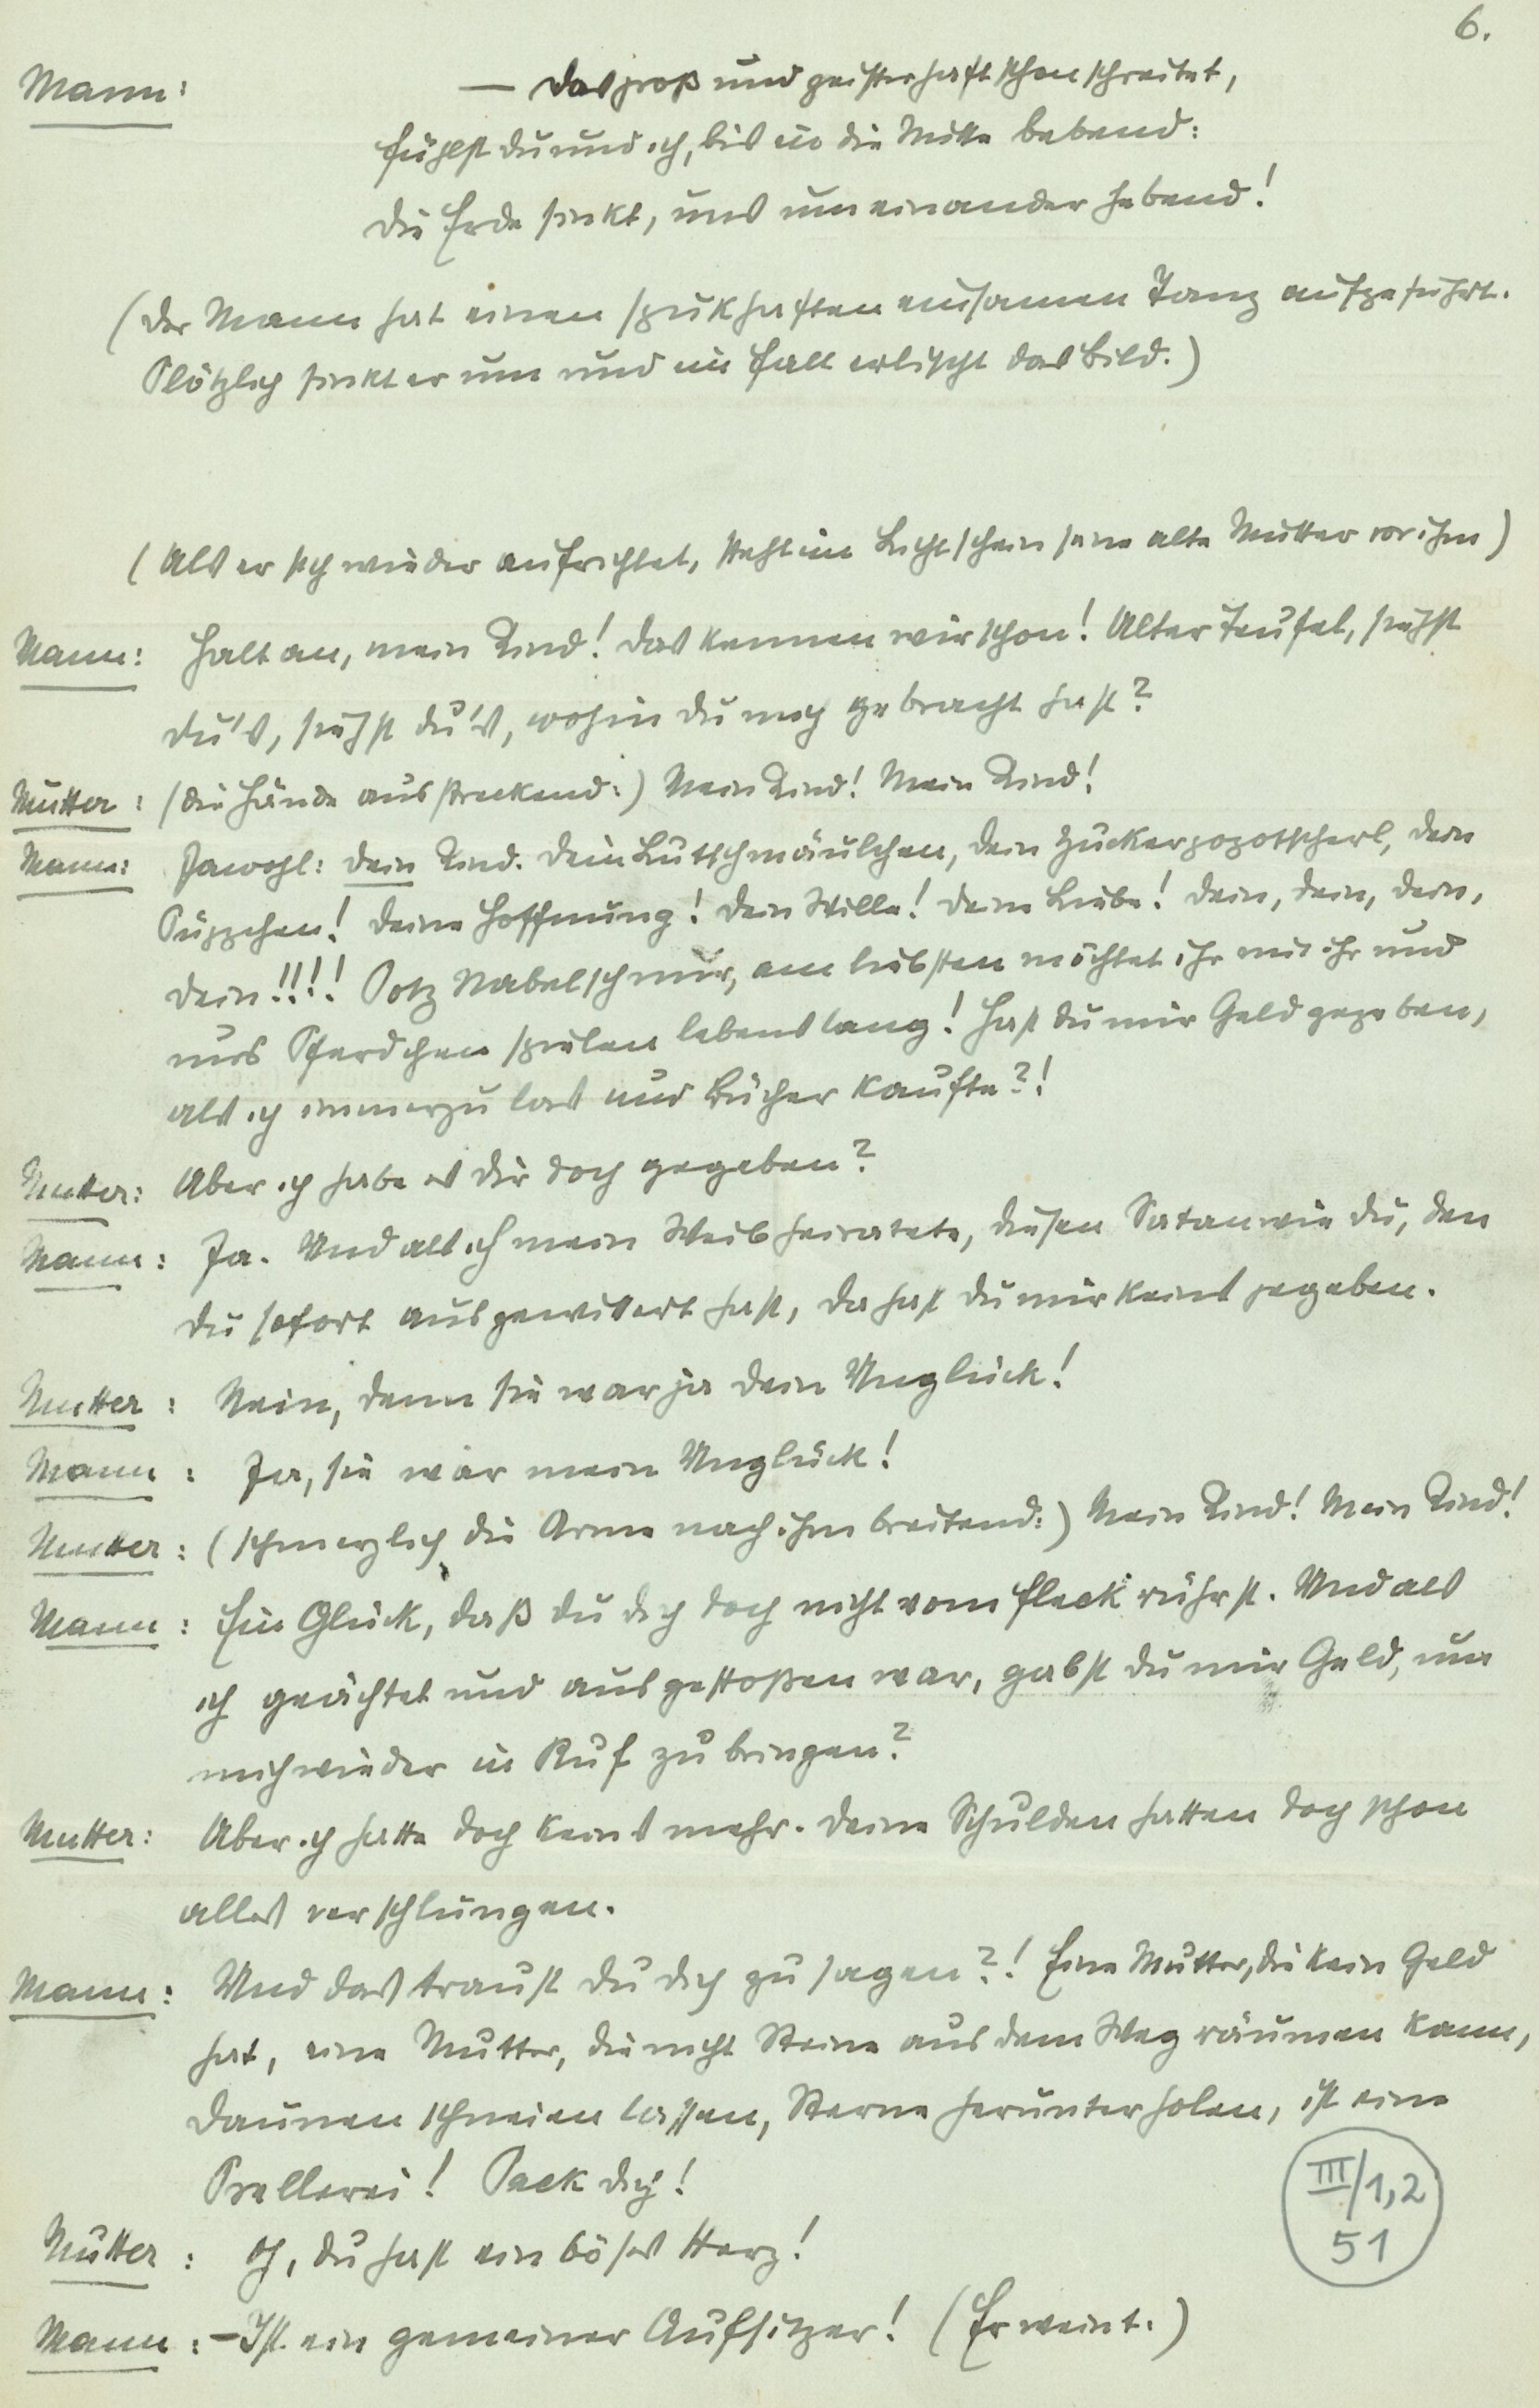 6.
Mann: — das groß und geisterhaft schon schreitet,
fühlst du und ich, bis in die Mitte bebend:
die Erde sinkt, uns umeinander hebend!
(der Mann hat einen spukhaften einsamen Tanz aufgeführt.
Plötzlich sinkt er um und im Fall erlischt das Bild.)
(Als er sich wieder aufrichtet, steht im Lichtschein seine alte Mutter vor ihm)
Mann: Halt an, mein Kind! Das kennen wir schon! Alter Teufel, siehst
du's, siehst du's, wohin du mich gebracht hast?
Mutter: (die Hände ausstreckend:) Mein Kind! Mein Kind!
Mann: Jawohl: dein Kind. Dein Lutschmäulchen, dein Zuckerpopotscherl, dein
Püppchen! Deine Hoffnung! Dein Wille! Deine Liebe! Dein, dein, dein,
dein!!!! Potz Nabelschnur, am liebsten möchtet ihr mit ihr und
uns Pferdchen spielen lebenslang! Hast du mir Geld gegeben,
als ich immerzu las und Bücher kaufte?!
Mutter: Aber ich habe es dir doch gegeben?
Mann: Ja. Und als ich mein Weib heiratete, diesen Satan wie du, den
du sofort ausgewittert hast, da hast du mir keins gegeben.
Mutter: Nein, denn sie war ja dein Unglück!
Mann: Ja, sie war mein Unglück!
Mutter: (schmerzlich die Arme nach ihm breitend:) Mein Kind! Mein Kind!
Mann: Ein Glück, daß du dich doch nicht vom Fleck rührst. Und als
ich geächtet und ausgestoßen war, gabst du mir Geld, um
mich wieder in Ruf zu bringen?
Mutter: Aber ich hatte doch keins mehr. Deine Schulden hatten doch schon
alles verschlungen.
Mann: Und das traust du dich zu sagen?! Eine Mutter, die kein Geld
hat, eine Mutter, die nicht Steine aus dem Weg räumen kann,
Daunen schneien lassen, Sterne herunterholen, ist eine
Prellerei! Pack dich!
Mutter: Oh, du hast ein böses Herz!
Mann: – Ist ein gemeiner Aufsitzer! (Er weint.)
III/1,2
51